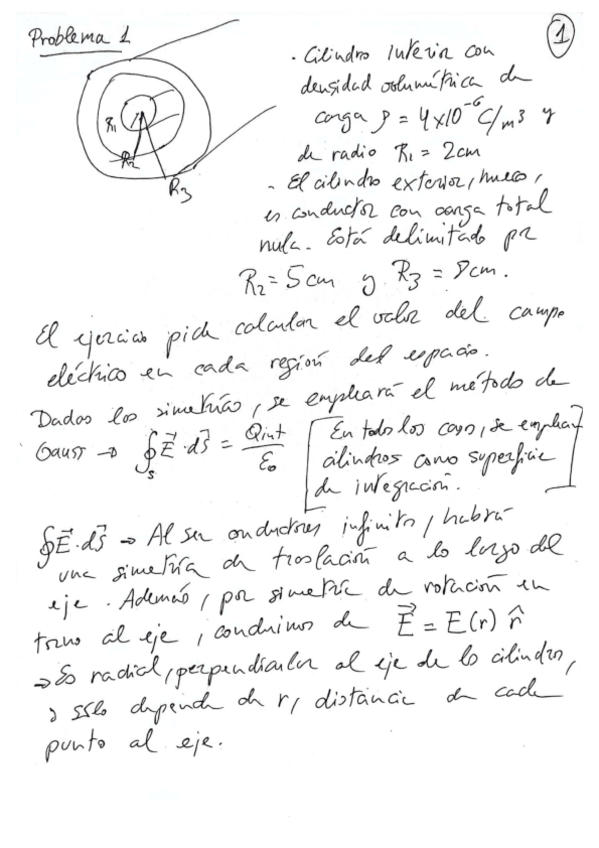 Problema 1
1
R1
R2
R3
· Cilindro interior con
densidad volumétrica de
carga ρ = 4x10⁻⁶ C/m³ y
de radio R₁ = 2cm
- El cilindro exterior, hueco,
es conductor con carga total
nula. Está delimitado por
R₂ = 5cm y R₃ = 8cm.
El ejercicio pide calcular el valor del campo
eléctrico en cada región del espacio.
Dadas las simetrías, se empleará el método de
Gauss → ∮ₛ E⃗·ds⃗ = Qint/ε₀
En todos los casos, se emplean
cilindros como superficie
de integración.
∮E⃗·ds⃗ → Al ser conductores infinitos, habrá
una simetría de traslación a lo largo del
eje. Además, por simetría de rotación en
torno al eje, concluimos de E⃗ = E(r) r̂
→ Es radial, perpendicular al eje de los cilindros,
y sólo depende de r, distancia de cada
punto al eje.